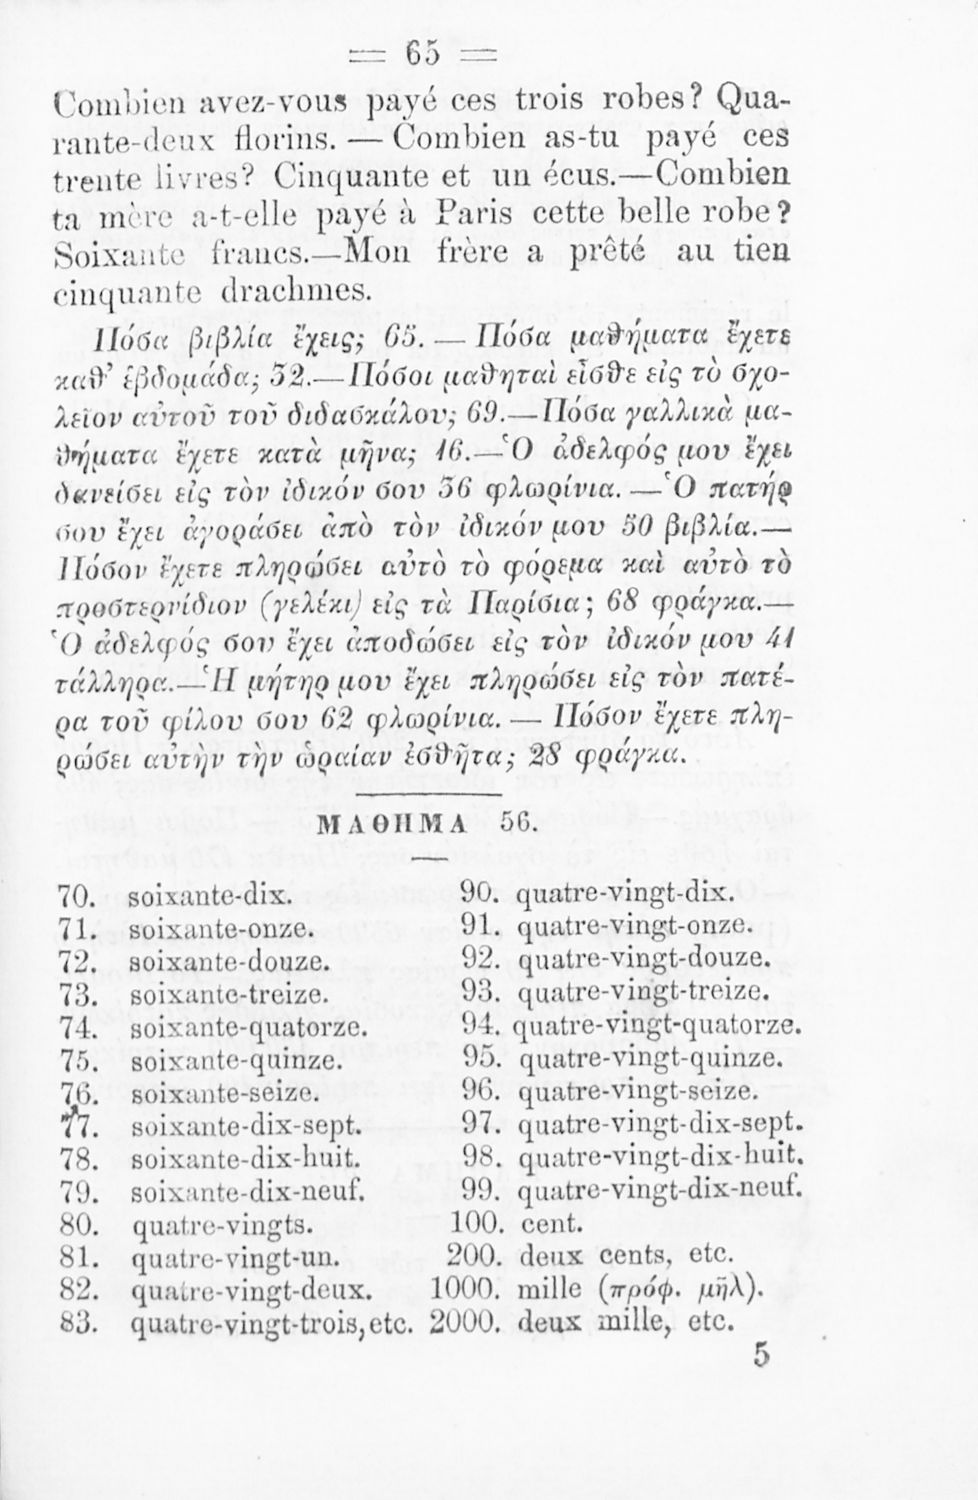 = 65 =
Combien avez-vous payé ces trois robes? Qua-
rante-deux florins. — Combien as-tu payé ces
trente livres? Cinquante et un écus.—Combien
ta mère a-t-elle payé à Paris cette belle robe?
Soixante francs.—Mon frère a prêté au tien
cinquante drachmes.
Πόσα βιβλία ἔχεις; 65. — Πόσα μαθήματα ἔχετε
καθ’ ἑβδομάδα; 32.—Πόσοι μαθηταὶ εἶσθε εἰς τὸ σχο-
λεῖον αὐτοῦ τοῦ διδασκάλου; 69.—Πόσα γαλλικὰ μα-
θήματα ἔχετε κατὰ μῆνα; 16.—Ὁ ἀδελφός μου ἔχει
δανείσει εἰς τὸν ἰδικόν σου 36 φλωρίνια. — Ὁ πατήρ
σου ἔχει ἀγοράσει ἀπὸ τὸν ἰδικόν μου 50 βιβλία.—
Πόσον ἔχετε πληρώσει αὐτὸ τὸ φόρεμα καὶ αὐτὸ τὸ
προστερνίδιον (γελέκι) εἰς τὰ Παρίσια; 68 φράγκα.—
Ὁ ἀδελφός σου ἔχει ἀποδώσει εἰς τὸν ἰδικόν μου 41
τάλληρα.—Ἡ μήτηρ μου ἔχει πληρώσει εἰς τὸν πατέ-
ρα τοῦ φίλου σου 62 φλωρίνια. — Πόσον ἔχετε πλη-
ρώσει αὐτὴν τὴν ὡραίαν ἐσθῆτα; 28 φράγκα.
ΜΑΘΗΜΑ 56.
70. soixante-dix.
71. soixante-onze.
72. soixante-douze.
73. soixante-treize.
74. soixante-quatorze.
75. soixante-quinze.
76. soixante-seize.
77. soixante-dix-sept.
78. soixante-dix-huit.
79. soixante-dix-neuf.
80. quatre-vingts.
81. quatre-vingt-un.
82. quatre-vingt-deux.
83. quatre-vingt-trois, etc.
90. quatre-vingt-dix.
91. quatre-vingt-onze.
92. quatre-vingt-douze.
93. quatre-vingt-treize.
94. quatre-vingt-quatorze.
95. quatre-vingt-quinze.
96. quatre-vingt-seize.
97. quatre-vingt-dix-sept.
98. quatre-vingt-dix-huit.
99. quatre-vingt-dix-neuf.
100. cent.
200. deux cents, etc.
1000. mille (πρόφ. μῆλ).
2000. deux mille, etc.
5